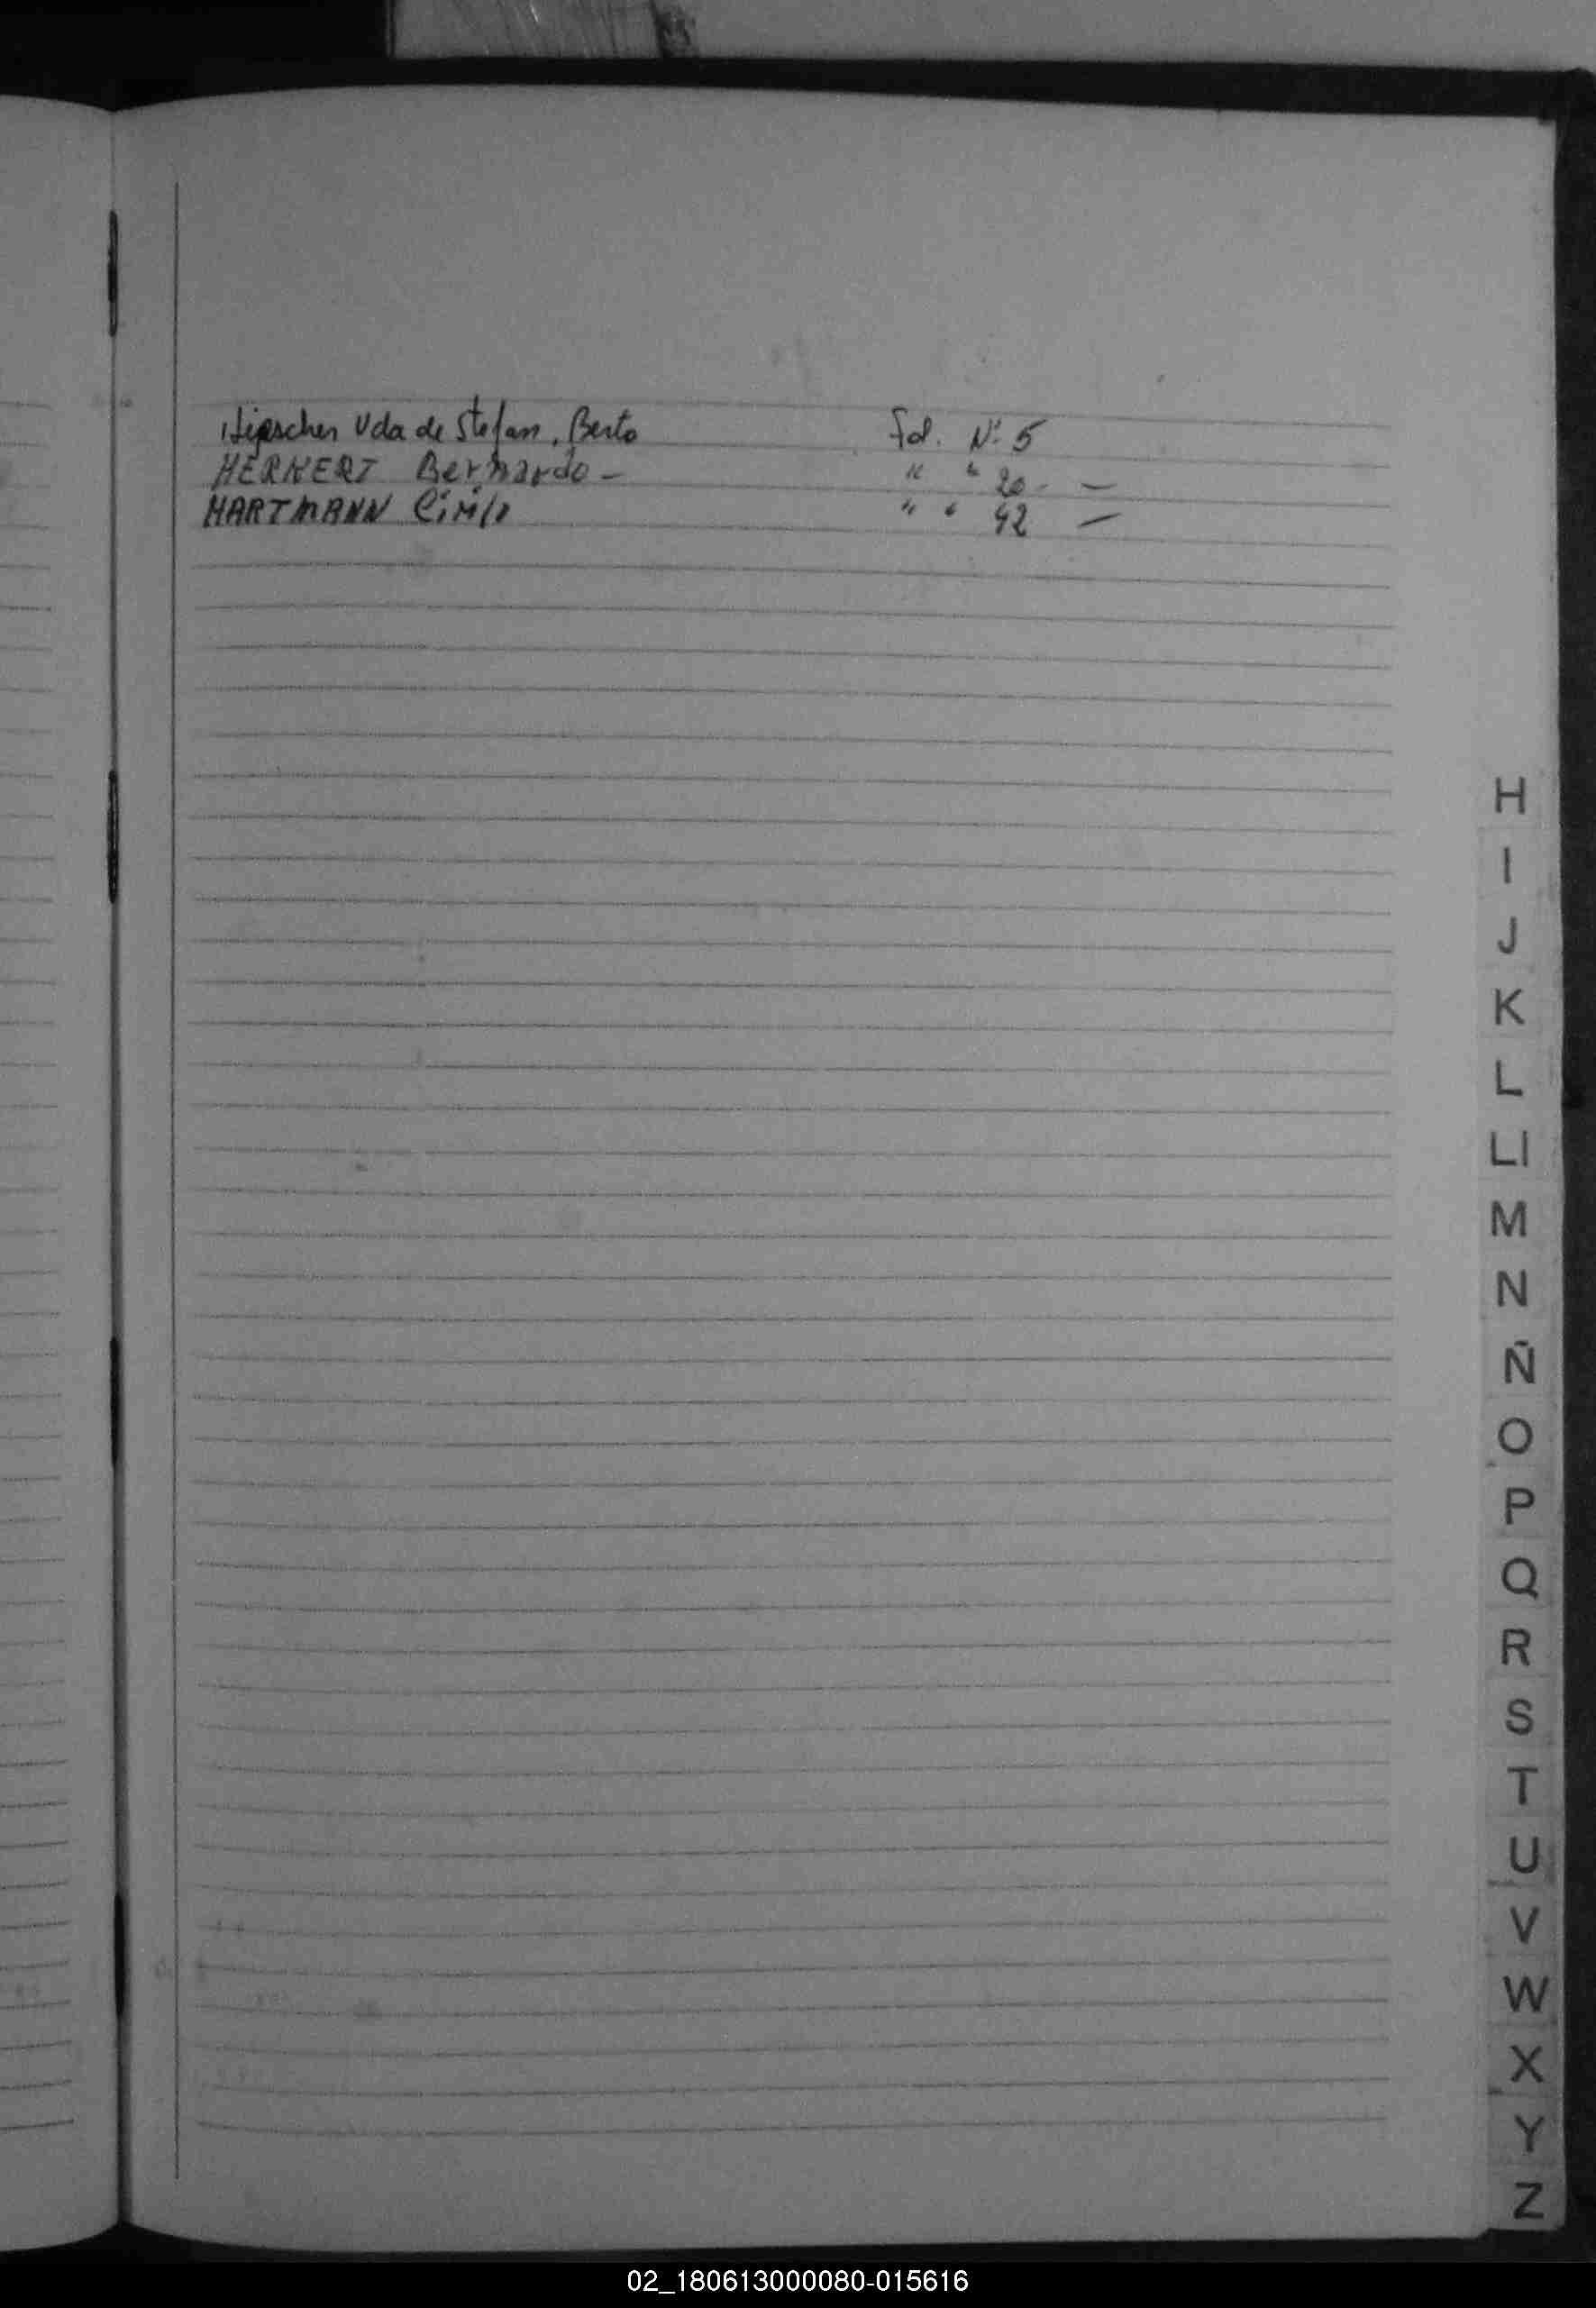 Hipscher Vda de Stefan, Berto Fol. Nº 5
HERKERT Bernardo - " " 20 - —
HARTMANN " " 42 —
H
I
J
K
L
Ll
M
N
Ñ
O
P
Q
R
S
T
U
V
W
X
Y
Z
02_180613000080-015616